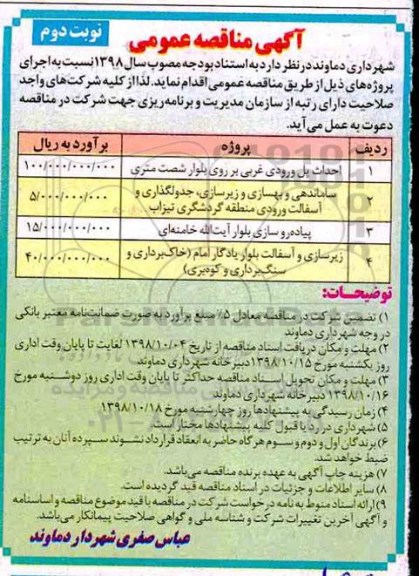 نوبت دوم
آگهی مناقصه عمومی
شهرداری دماوند در نظر دارد به استناد بودجه مصوب سال ۱۳۹۸ نسبت به اجرای
پروژه‌های ذیل از طریق مناقصه عمومی اقدام نماید. لذا از کلیه شرکت‌های واجد
صلاحیت دارای رتبه از سازمان مدیریت و برنامه‌ریزی جهت شرکت در مناقصه
دعوت به عمل می‌آید.
ردیف پروژه برآورد به ریال
۱ احداث پل ورودی غربی بر روی بلوار شصت متری ۱۰۰/۰۰۰/۰۰۰/۰۰۰
۲ ساماندهی و بهسازی و زیرسازی، جدولگذاری و
آسفالت ورودی منطقه گردشگری تیزاب ۵/۰۰۰/۰۰۰/۰۰۰
۳ پیاده‌رو سازی بلوار آیت‌الله خامنه‌ای ۱۵/۰۰۰/۰۰۰/۰۰۰
۴ زیرسازی و آسفالت بلوار یادگار امام (خاک‌برداری و
سنگ‌برداری و کوه‌بری) ۴۰/۰۰۰/۰۰۰/۰۰۰
توضیحات:
۱) تضمین شرکت در مناقصه معادل ۵٪ مبلغ برآورد به صورت ضمانت‌نامه معتبر بانکی
در وجه شهرداری دماوند
۲) مهلت و مکان دریافت اسناد مناقصه از تاریخ ۱۳۹۸/۱۰/۰۴ لغایت تا پایان وقت اداری
روز یکشنبه مورخ ۱۳۹۸/۱۰/۱۵ دبیرخانه شهرداری دماوند
۳) مهلت و مکان تحویل اسناد مناقصه حداکثر تا پایان وقت اداری روز دوشنبه مورخ
۱۳۹۸/۱۰/۱۶ دبیرخانه شهرداری دماوند
۴) زمان رسیدگی به پیشنهادها روز چهارشنبه مورخ ۱۳۹۸/۱۰/۱۸
۵) شهرداری در رد یا قبول کلیه پیشنهادها مختار است.
۶) برندگان اول و دوم و سوم هر گاه حاضر به انعقاد قرارداد نشوند سپرده آنان به ترتیب
ضبط خواهد شد.
۷) هزینه چاپ آگهی به عهده برنده مناقصه می‌باشد.
۸) سایر اطلاعات و جزئیات در اسناد مناقصه قید گردیده است.
۹) ارائه اسناد منوط به نامه درخواست شرکت در مناقصه با قید موضوع مناقصه و اساسنامه
و آگهی آخرین تغییرات شرکت و شناسه ملی و گواهی صلاحیت پیمانکار می‌باشد.
عباس صفری شهردار دماوند